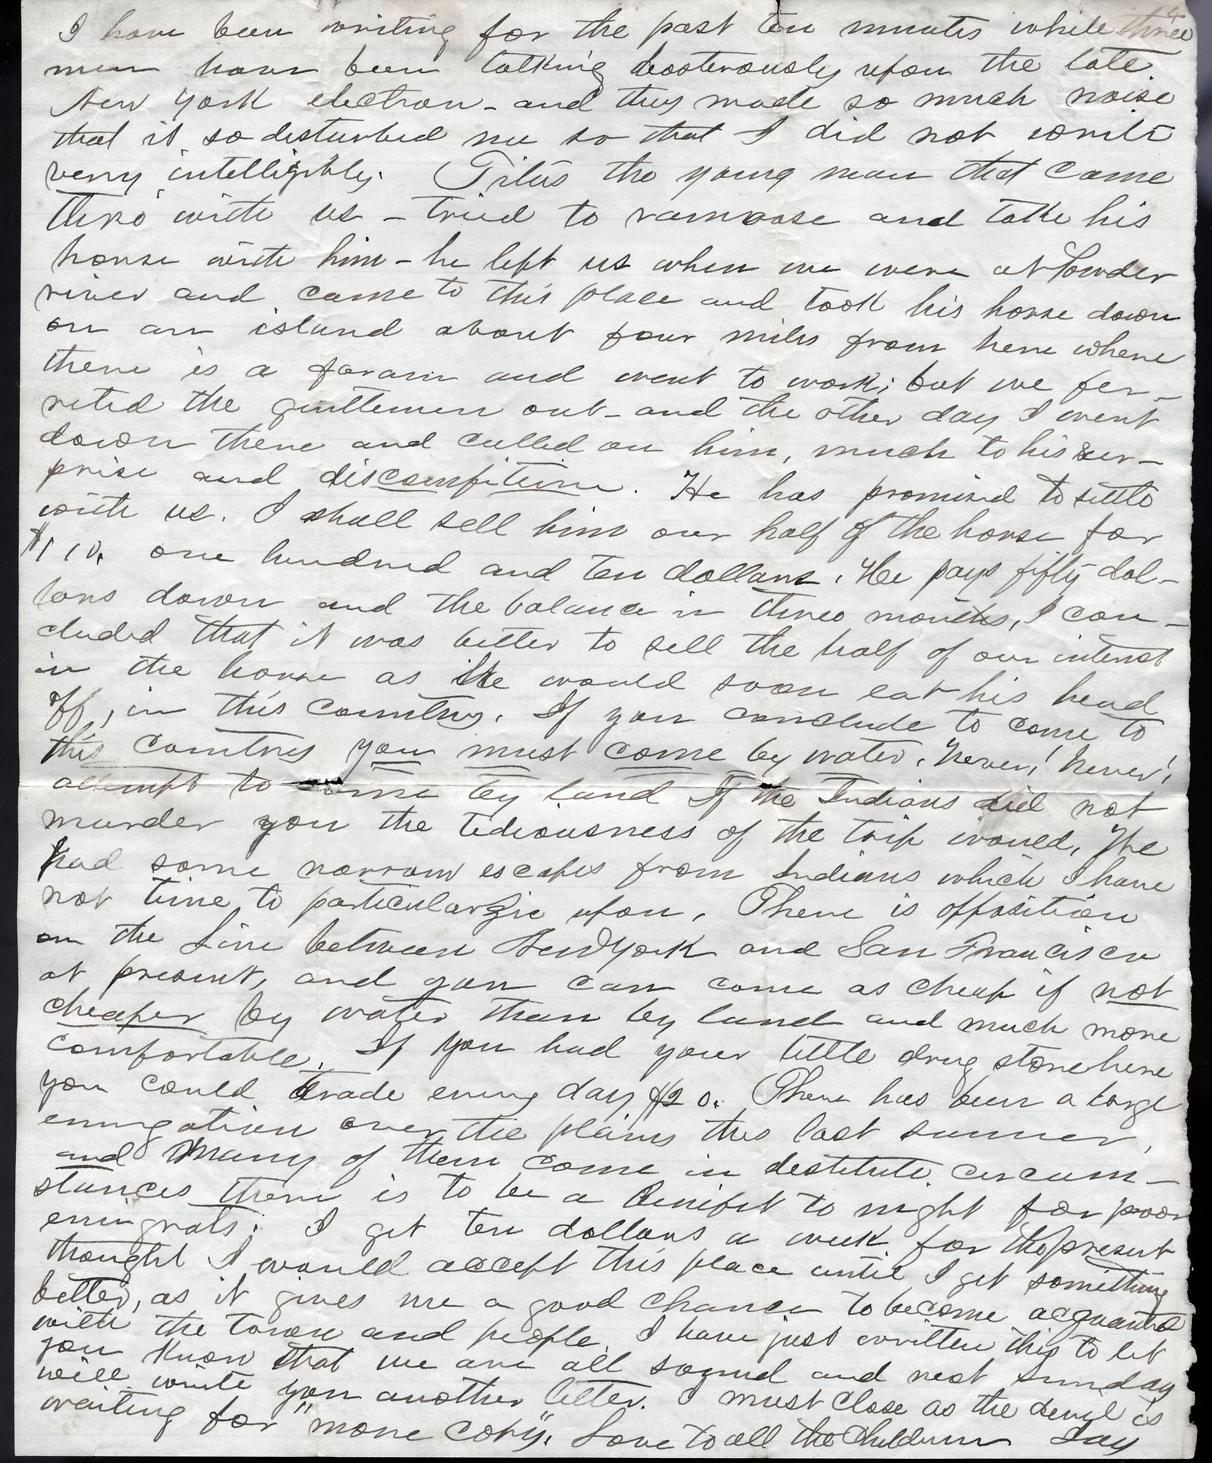 4
I have been writing for the past ten minutes while three
men have been talking boosterously upon the late
New York election - and they made so much noise
that it so disturbed me so that I did not write
very intelligibly. Titus the young man that came
thro' with us - tried to vamoose and take his
horse with him - he left us when we were at Powder
river and came to this place and took his horse down
on an island about four miles from here where
there is a faram and went to work; but we fer-
reted the gentlemen out - and the other day I went
down there and called on him, much to his sur-
prise and discomfiture. He has promised to settle
with us. I shall sell him our half of the horse for
$110. one hundred and ten dollars. He pays fifty dol-
lars down and the balance in three months, I con-
cluded that it was better to sell the half of our interest
in the horse as he would soon eat his head
off, in this country. If you conclude to come to
this country you must come by water, Never! Never!
attempt to come by land If the Indians did not
murder you the tediousness of the trip would, We
had some narrow escapes from Indians which I have
not time to particularize upon. There is opposition
on the Line between New York and San Francisco
at present, and you can come as cheap if not
cheaper by water than by land and much more
comfortable. If you had your little drug store here
you could trade every day $20. There has been a large
emigration over the plains this last summer,
and many of them come in destitute circum-
stances there is to be a benifit to night for poor
emigrats. I get ten dollars a week for the present
thought I would accept this place until I get something
better, as it gives me a good chance to become acquainted
with the town and people. I have just written this to let
you know that we are all sound and next Sunday
will write you another letter. I must close as the devil is
waiting for "more copy". Love to all the Children Say